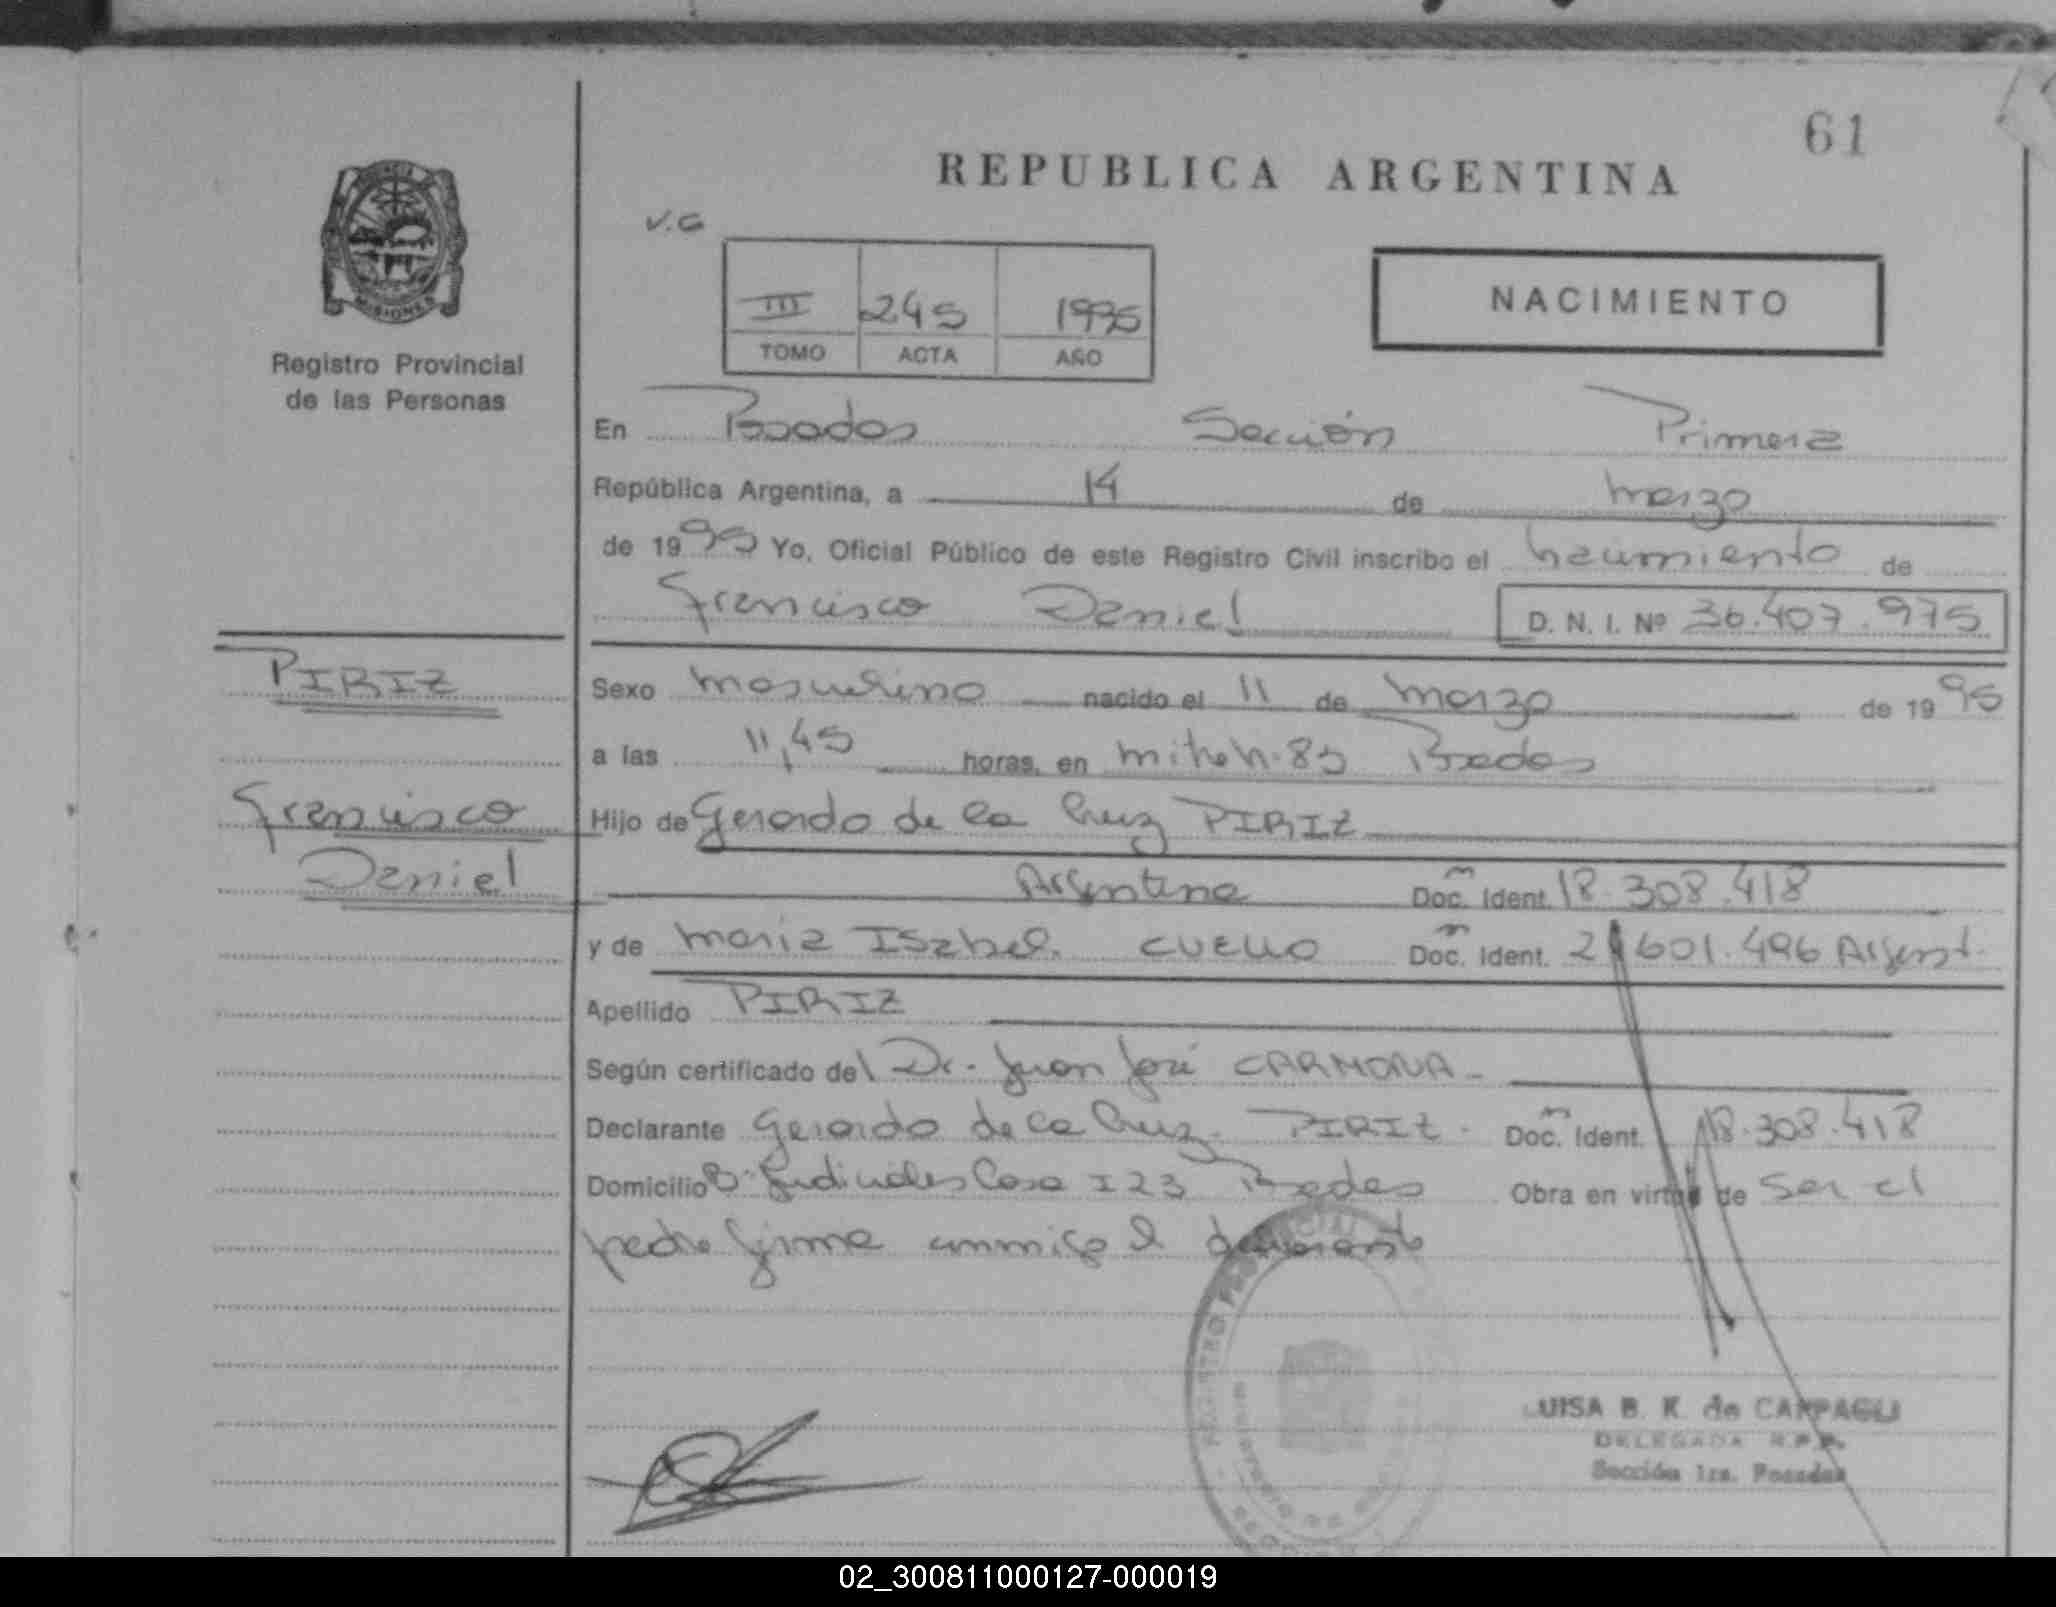 61
REPUBLICA ARGENTINA
V.G
MISIONES
Registro Provincial
de las Personas
III 245 1995
TOMO ACTA AÑO
NACIMIENTO
En Posadas Sección Primera
República Argentina, a 14 de marzo
de 1995 Yo, Oficial Público de este Registro Civil inscribo el nacimiento de
Francisco Daniel D. N. I. Nº 36.407.975
PIRIZ
Sexo masculino nacido el 11 de marzo de 1995
a las 11,45 horas, en Posadas
Francisco
Daniel
Hijo de Gerardo de la Cruz PIRIZ
Argentina Doc. Ident. 18.308.418
y de Maria Isabel CUELLO Doc. Ident. 601.496 Argent.
Apellido PIRIZ
Según certificado del Dr. Juan José CARMONA
Declarante Gerardo de la Cruz PIRIZ Doc. Ident. 18.308.418
Domicilio Bº Judiciales Casa 123 Posadas Obra en virtud de ser el
padre firma conmigo el declarante
REGISTRO PROVINCIAL
LUISA B. K. de CARPAGLI
DELEGADA R.P.P.
Sección 1ra. Posadas
02_300811000127-000019